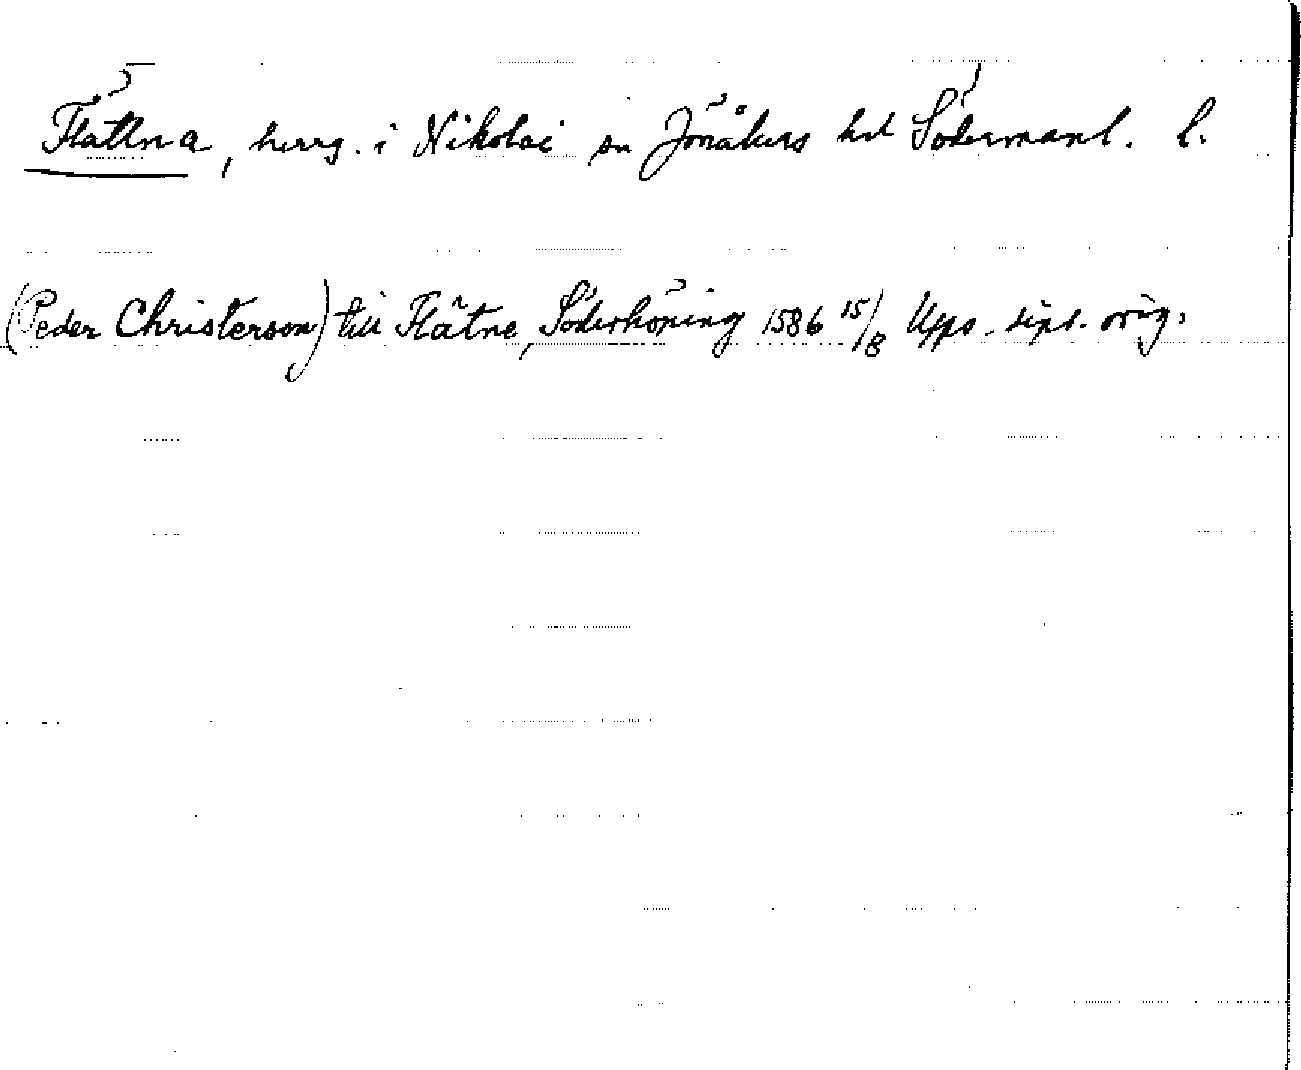 Flättna, herrg. i Nikolai sn Jönåkers hd Södermanl. l.
(Peder Christerson) till Flätne, Söderköping 1586 15/8 Upps. dipl. orig.